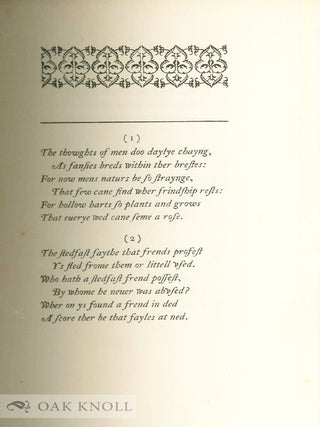 (1)
The thowghts of men doo daylye chayng,
As fansies breds within ther brestes:
For now mens naturs be ſo ſtraynge,
That few cane find wher frindſhip reſts:
For hollow harts ſo plants and grows
That euerye wed cane ſeme a roſe.
(2)
The ſtedfaſt faythe that frends profeſt
Ys fled frome them or littell vſed.
Who hath a ſtedfaſt frend poſſeſt,
By whome he neuer was abvſed?
Wher on ys found a frend in ded
A ſcore ther be that fayles at ned.
OAK KNOLL